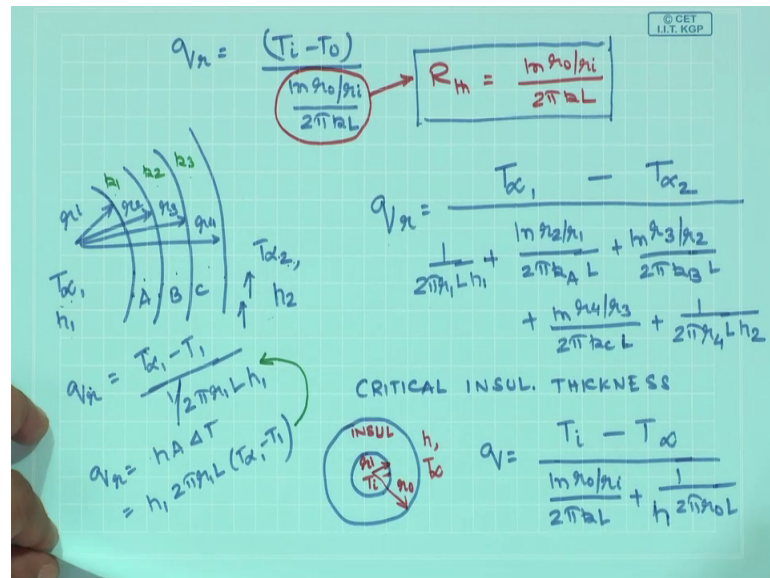 © CET
I.I.T. KGP
qr = (Ti - To) / (ln ro/ri / 2πkL)
Rth = ln ro/ri / 2πkL
k1 k2 k3
r1 r2 r3 r4
T∝1, h1
A B C
T∝2, h2
qr = (T∝1 - T∝2) / (1/2πr1Lh1 + ln r2/r1 / 2πkAL + ln r3/r2 / 2πkBL
+ ln r4/r3 / 2πkCL + 1/2πr4Lh2)
qr = (T∝1 - T1) / (1/2πr1Lh1)
qr = hAΔT
= h1 2πr1L (T∝1 - T1)
CRITICAL INSUL. THICKNESS
INSUL
h, T∞
ri
Ti
ro
q = (Ti - T∞) / (ln ro/ri / 2πkL + 1 / h 2πroL)